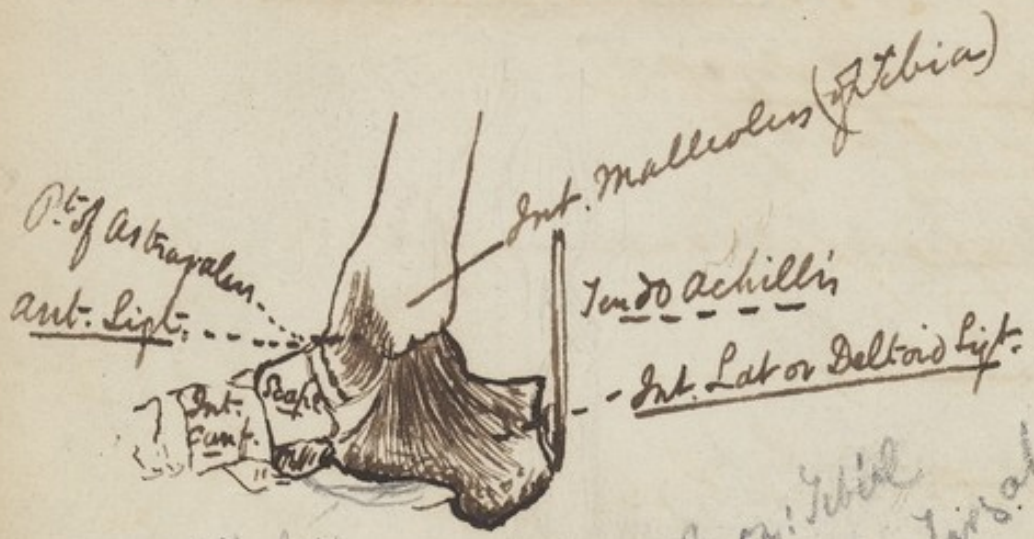 Int. Malleolus (of Tibia)
Pt. of Astragalus.
Ant. Ligt.
Tendo Achillis
Int. Lat or Deltoid Ligt.
Scaph
Int.
Cunf.
Tibial